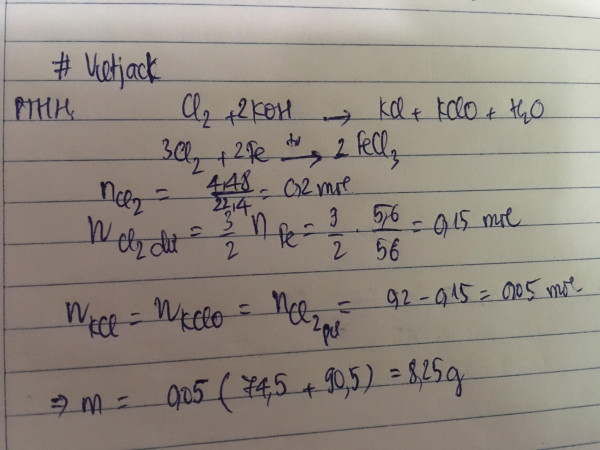 # Vietjack
PTHH: Cl₂ + 2KOH → KCl + KClO + H₂O
3Cl₂ + 2Fe →(t°) 2FeCl₃
n_Cl₂ = 4,48/22,4 = 0,2 mol
n_Cl₂ dư = 3/2 n_Fe = 3/2 . 5,6/56 = 0,15 mol
n_KCl = n_KClO = n_Cl₂ pư = 0,2 - 0,15 = 0,05 mol
⇒ m = 0,05 (74,5 + 90,5) = 8,25g